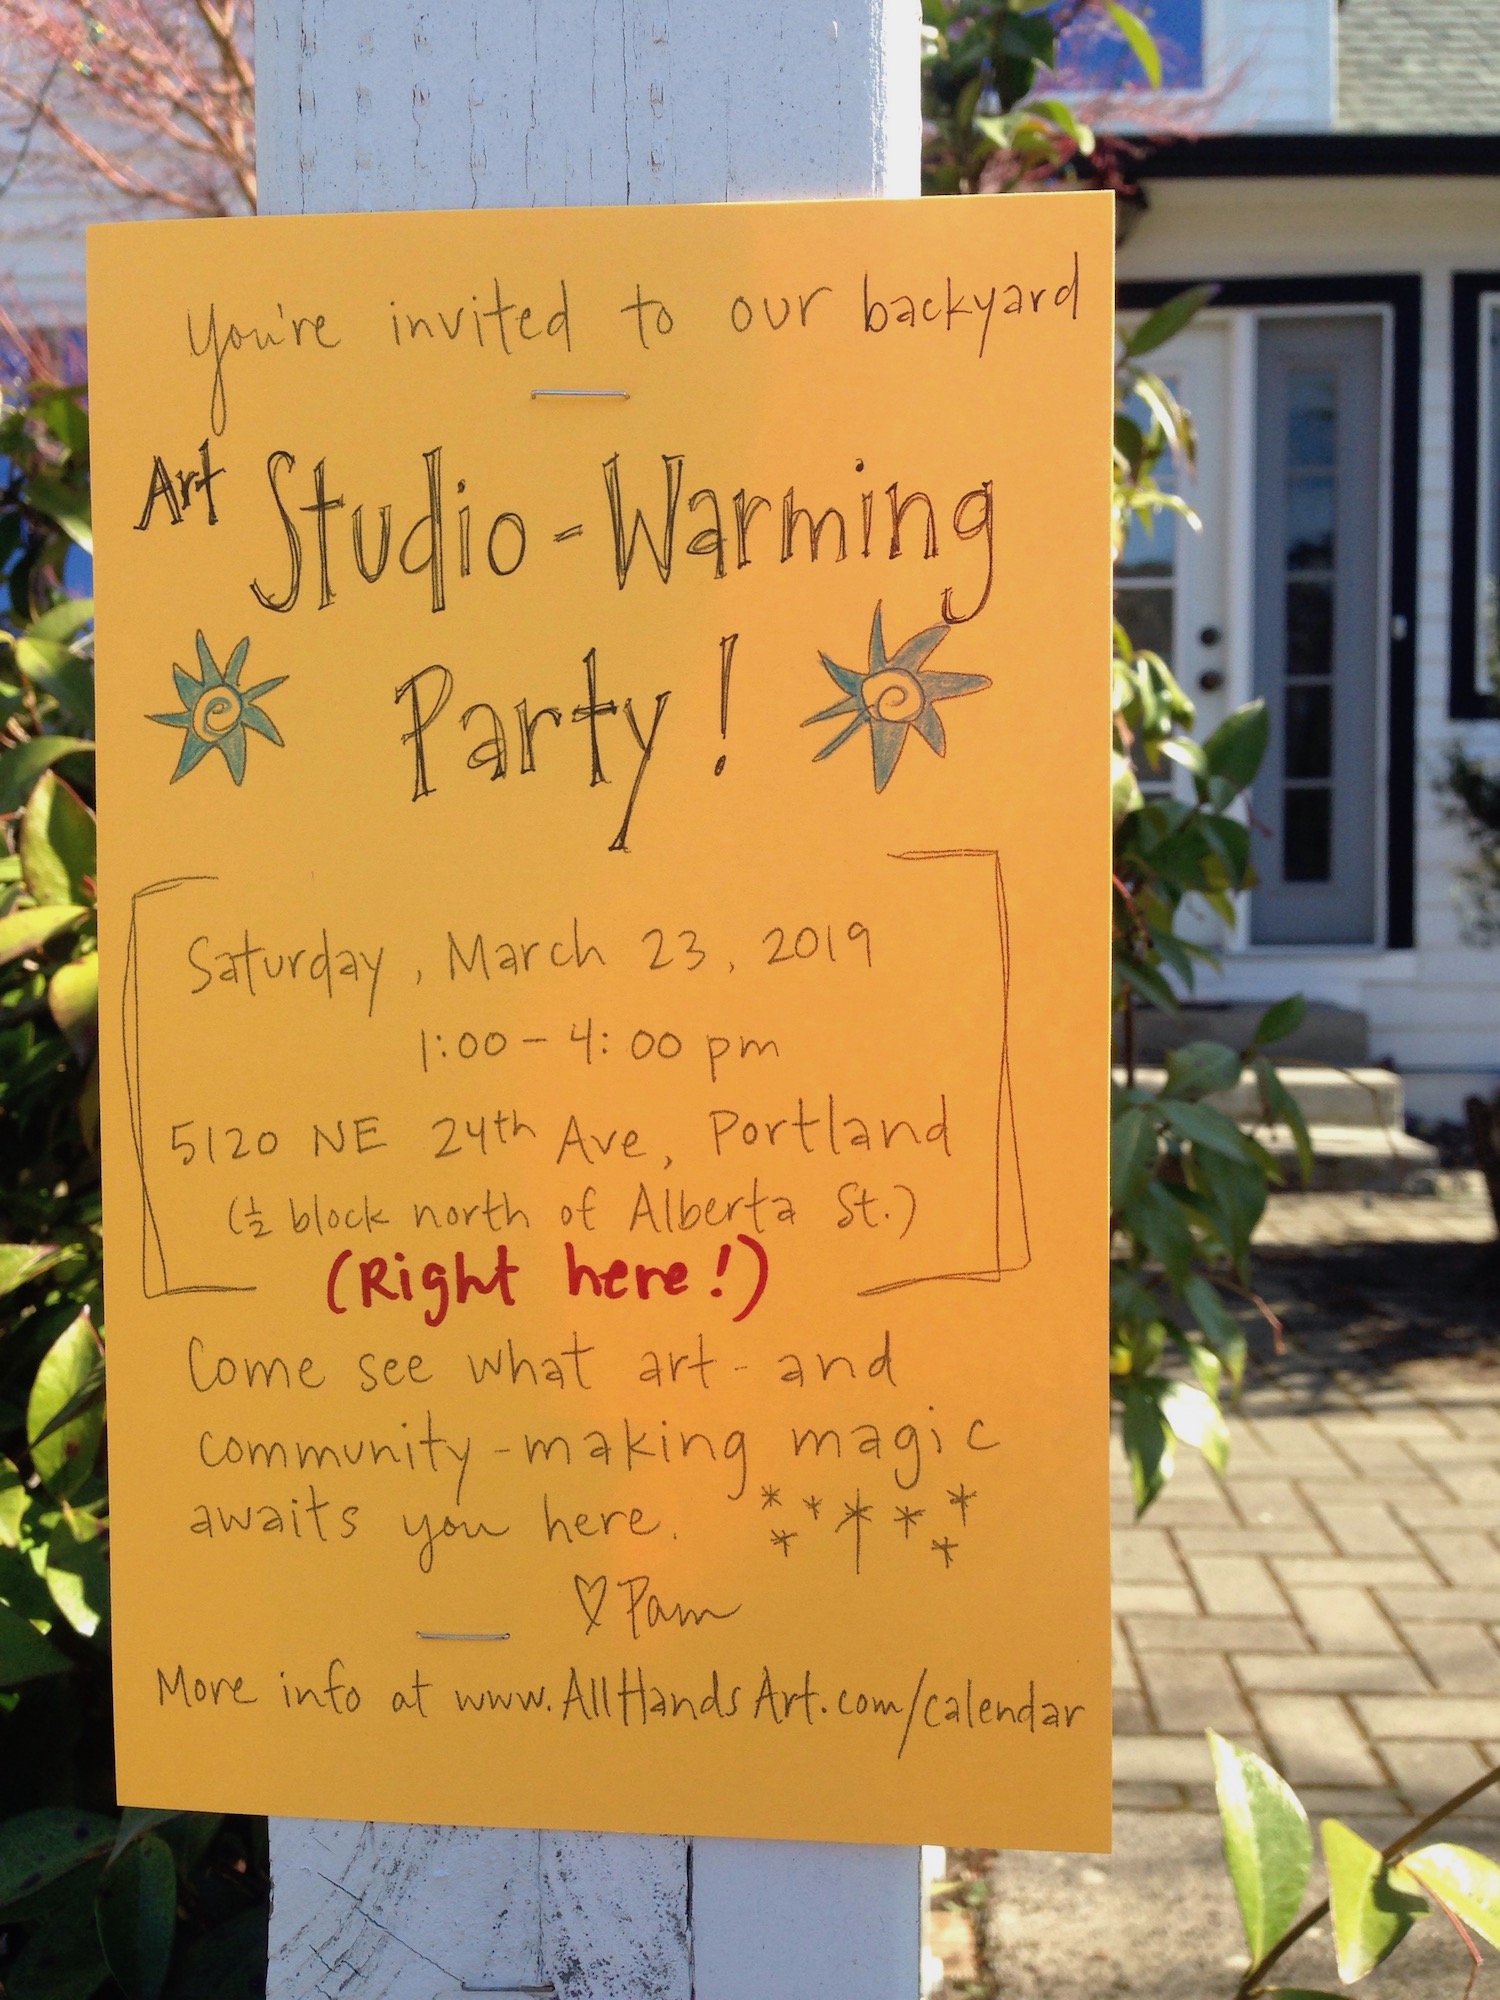 You're invited to our backyard
Art Studio-Warming
Party!
Saturday, March 23, 2019
1:00-4:00 pm
5120 NE 24th Ave, Portland
(½ block north of Alberta St.)
(Right here!)
Come see what art- and
community-making magic
awaits you here.
♡ Pam
More info at www.AllHandsArt.com/calendar